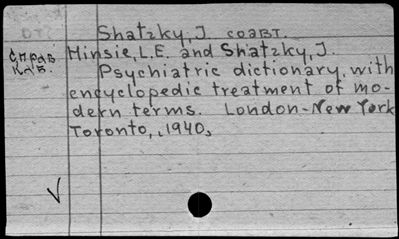 Shatzky, J. соавт.
Справ Hinsie, L.E. and Shatzky, J.
каб. Psychiatric dictionary, with
encyclopedic treatment of mo-
dern terms. London-New York
Toronto, 1940,